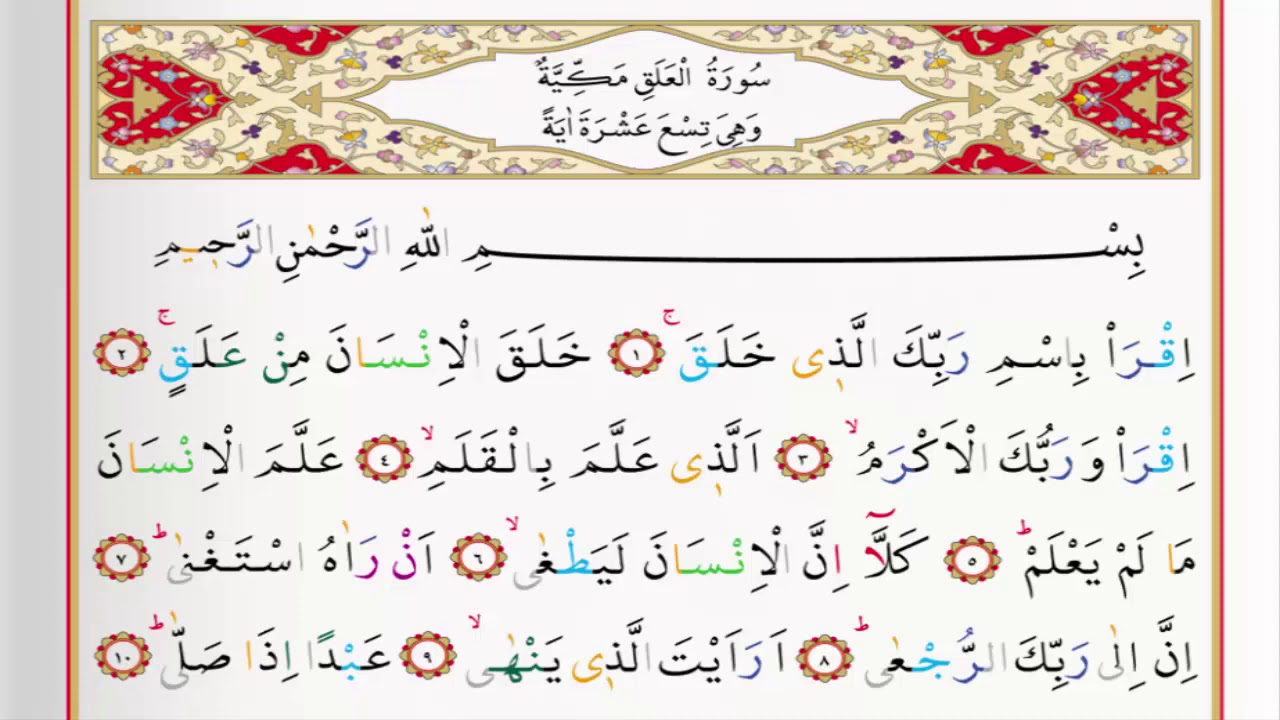 سُورَةُ الْعَلَقِ مَكِّيَّةٌ
وَهِىَ تِسْعَ عَشْرَةَ اٰيَةً
بِسْمِ اللّٰهِ الرَّحْمٰنِ الرَّحٖيمِ
اِقْرَاْ بِاسْمِ رَبِّكَ الَّذٖى خَلَقَۚ ﴿١﴾ خَلَقَ الْاِنْسَانَ مِنْ عَلَقٍۚ ﴿٢﴾
اِقْرَاْ وَرَبُّكَ الْاَكْرَمُۙ ﴿٣﴾ اَلَّذٖى عَلَّمَ بِالْقَلَمِۙ ﴿٤﴾ عَلَّمَ الْاِنْسَانَ
مَا لَمْ يَعْلَمْؕ ﴿٥﴾ كَلَّٓا اِنَّ الْاِنْسَانَ لَيَطْغٰىۙ ﴿٦﴾ اَنْ رَاٰهُ اسْتَغْنٰىؕ ﴿٧﴾
اِنَّ اِلٰى رَبِّكَ الرُّجْعٰىؕ ﴿٨﴾ اَرَاَيْتَ الَّذٖى يَنْهٰىۙ ﴿٩﴾ عَبْدًا اِذَا صَلّٰىؕ ﴿١٠﴾